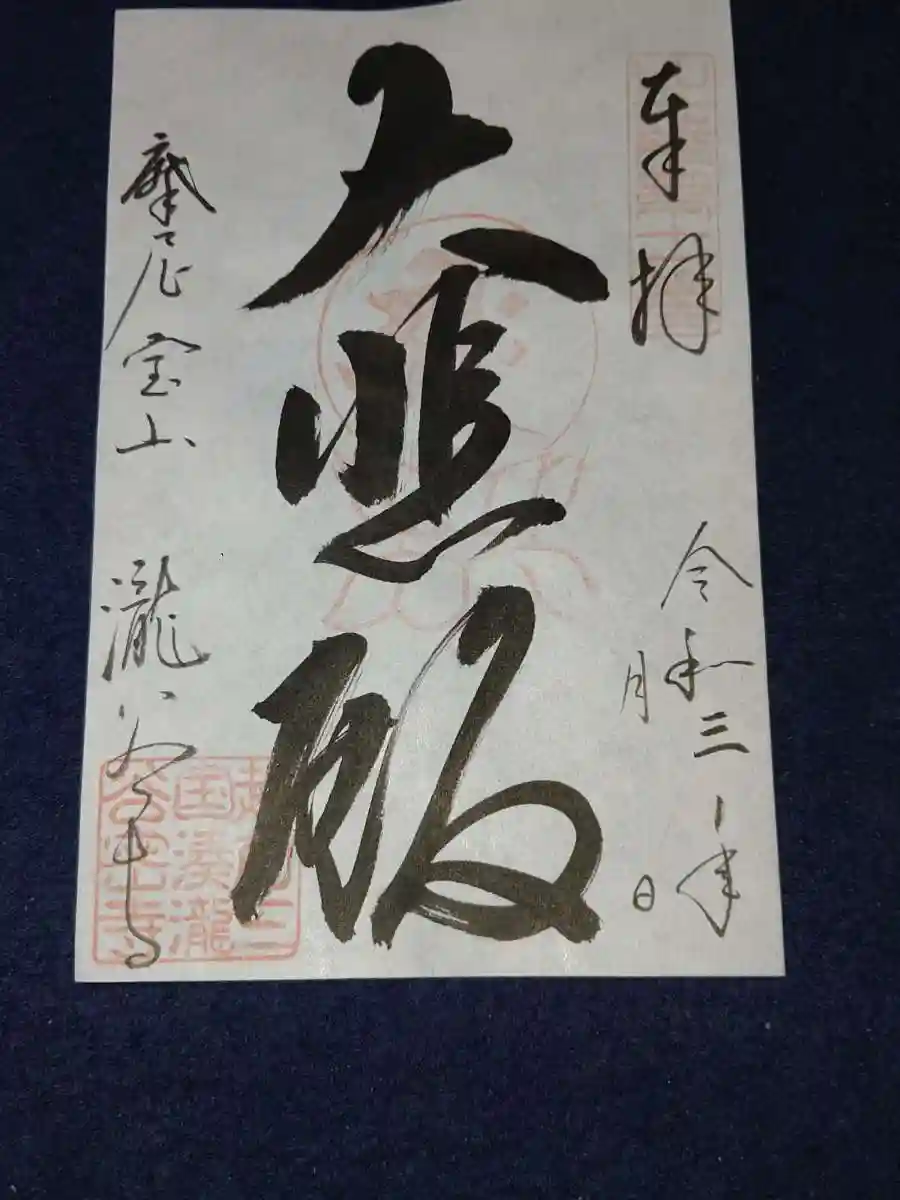 奉拝
令和三年
月 日
大悲殿
摩尼宝山 瀧谷寺
越前三
国湊瀧
谷 寺